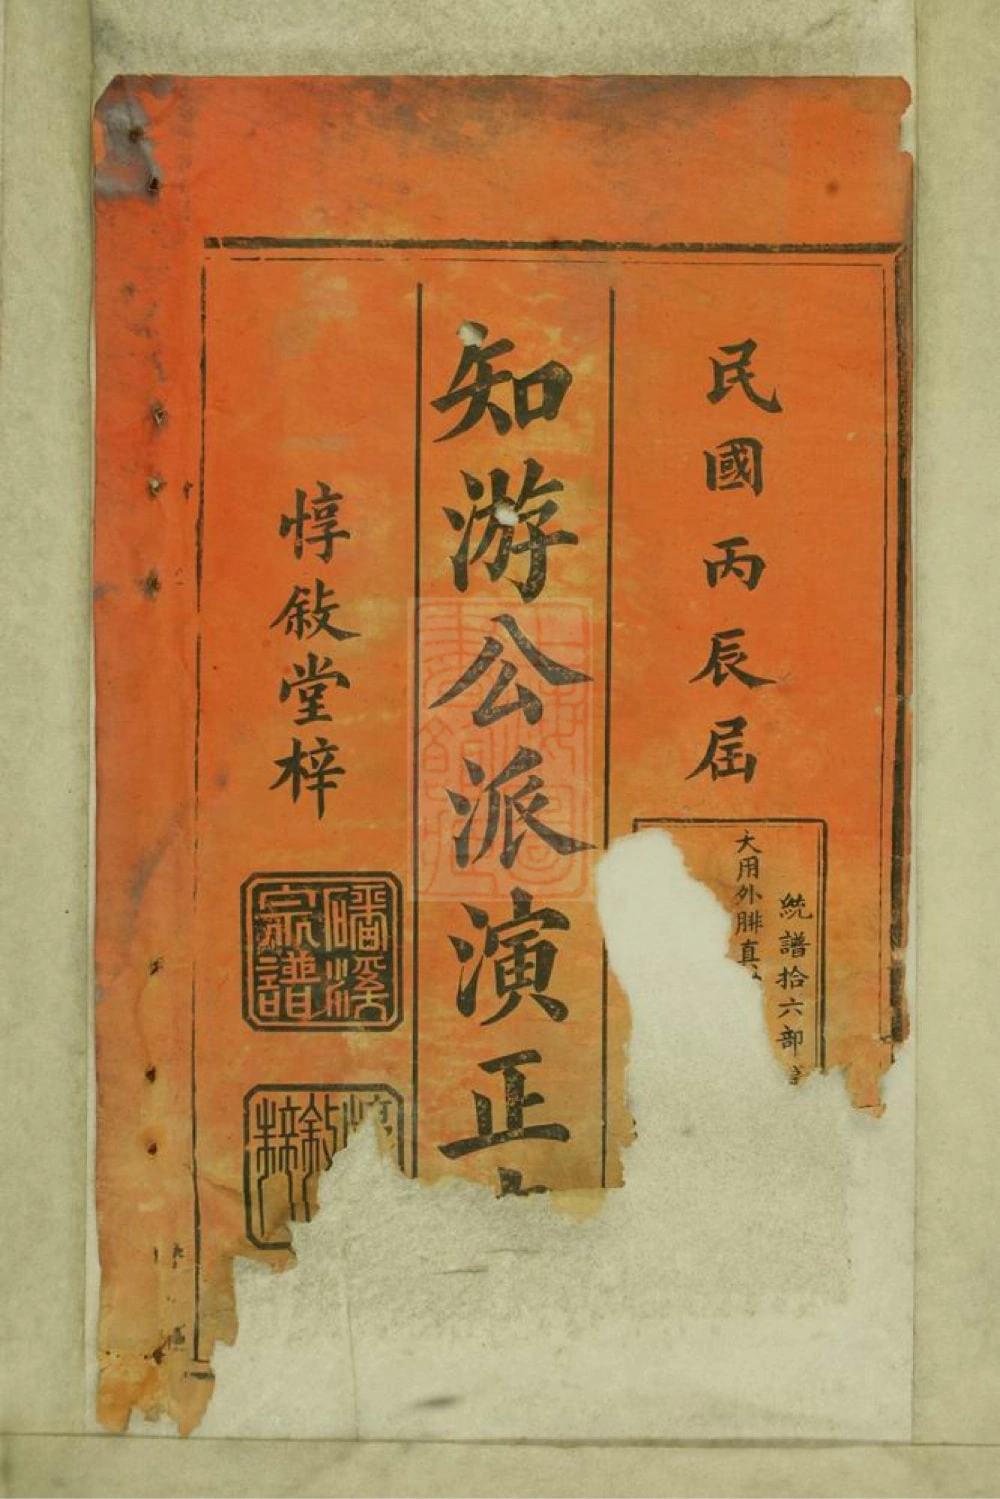 民國丙辰屆
統譜拾六部
大用外腓真
知游公派演正
惇敍堂梓
磻溪宗譜
惇敍
梓